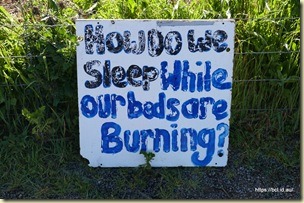 How Do we
Sleep While
our beds are
Burning?
https://bcl.id.au/